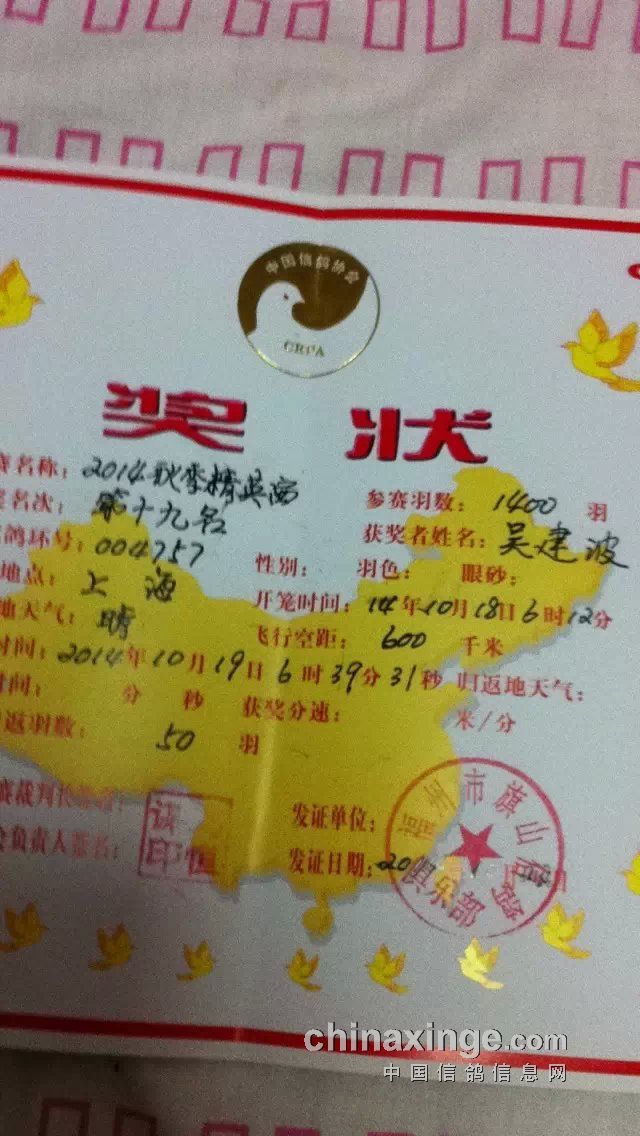 中国信鸽协会
CRPA
奖状
赛名称：2014秋季精英赛
参赛羽数：1400羽
名次：第十九名
获奖者姓名：吴建波
鸽环号：004757
性别： 羽色： 眼砂：
地点：上海
开笼时间：14年10月18日6时12分
地天气：晴
飞行空距：600千米
时间：2014年10月19日6时39分31秒 归返地天气：
时间： 分 秒 获奖分速： 米/分
返羽数：50羽
裁判长
发证单位：
负责人签名：
发证日期：20
州市旗山
俱乐部
chinaxinge.com
中国信鸽信息网